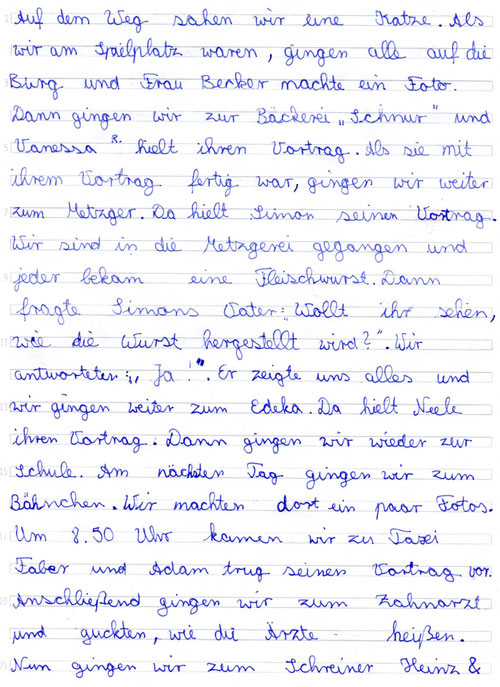 Auf dem Weg sahen wir eine Katze. Als
wir am Spielplatz waren, gingen alle auf die
Burg und Frau Berker machte ein Foto.
Dann gingen wir zur Bäckerei „Schnur" und
Vanessa R. hielt ihren Vortrag. Als sie mit
ihrem Vortrag fertig war, gingen wir weiter
zum Metzger. Da hielt Simon seinen Vortrag.
Wir sind in die Metzgerei gegangen und
jeder bekam eine Fleischwurst. Dann
fragte Simons Vater: „Wollt ihr sehen,
wie die Wurst hergestellt wird?". Wir
antworteten: „Ja!". Er zeigte uns alles und
wir gingen weiter zum Edeka. Da hielt Neele
ihren Vortrag. Dann gingen wir wieder zur
Schule. Am nächsten Tag gingen wir zum
Bähnchen. Wir machten dort ein paar Fotos.
Um 8.50 Uhr kamen wir zu Taxi
Faber und Adam trug seinen Vortrag vor.
Anschließend gingen wir zum Zahnarzt
und guckten, wie die Ärzte heißen.
Nun gingen wir zum Schreiner Heinz &